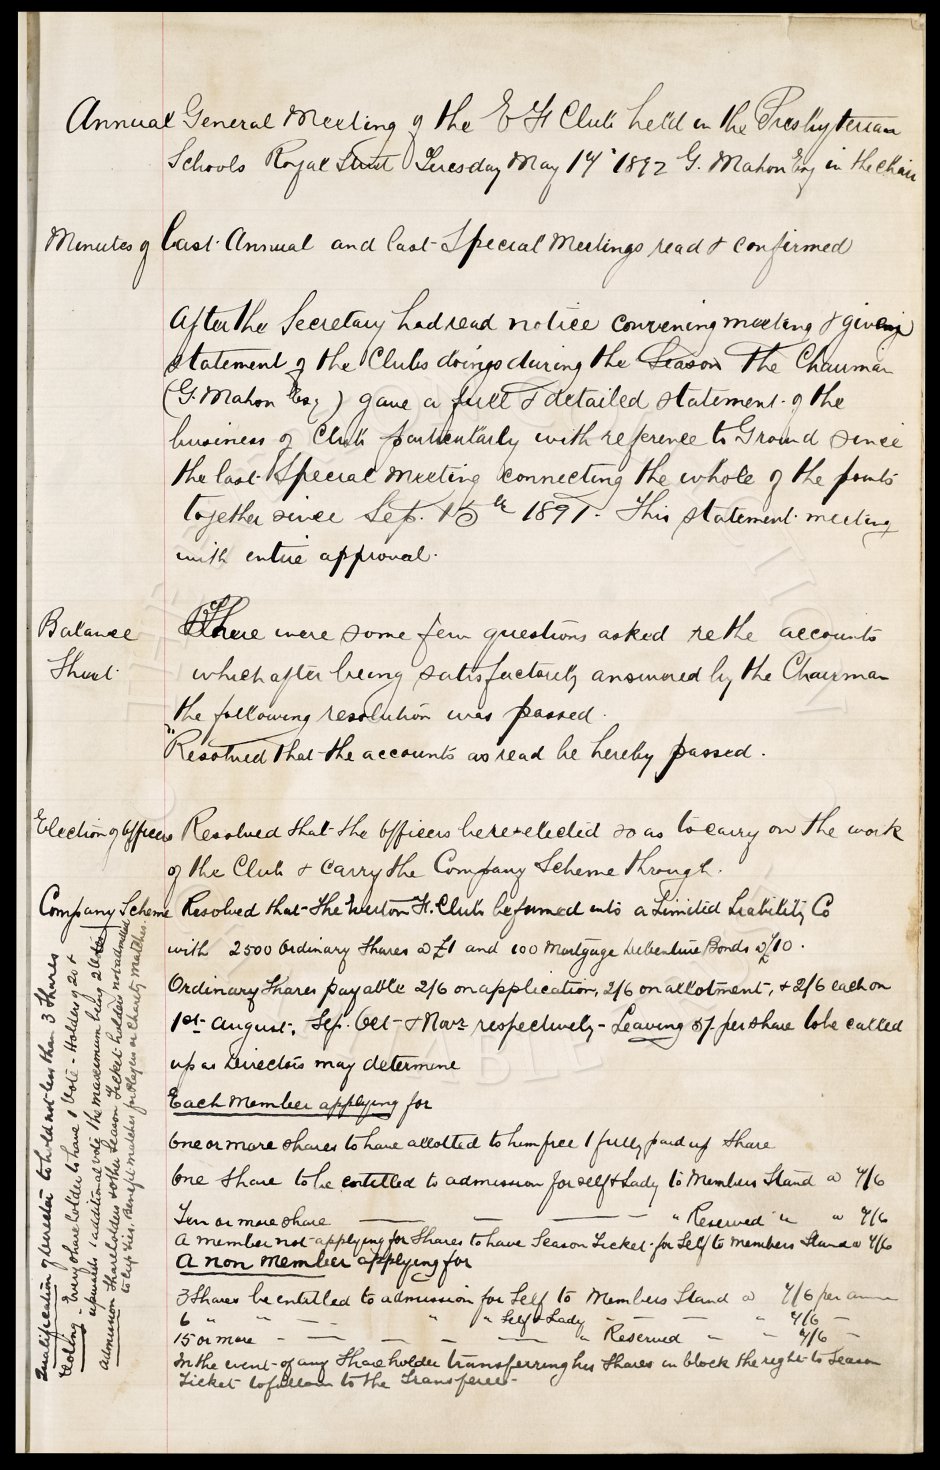 Annual General Meeting of the E F Club held in the Presbyterian
Schools Royal Street Tuesday May 17 1892 G. Mahon Esq in the chair
Minutes of last Annual and last Special Meetings read & confirmed
After the Secretary had read notice convening meeting & giving
statement of the Clubs doings during the Season The Chairman
(G. Mahon Esq) gave a full & detailed statement of the
business of Club particularly with reference to Ground since
the last Special Meeting connecting the whole of the points
together since Sep. 15th 1891. This statement meeting
with entire approval.
Balance
Sheet
There were some few questions asked re the accounts
which after being satisfactorily answered by the Chairman
the following resolution was passed.
"Resolved that the accounts as read be hereby passed.
Election of Officers Resolved that the Officers be re-elected so as to carry on the work
of the Club & carry the Company Scheme through.
Company Scheme Resolved that the Everton F. Club be formed into a Limited Liability Co
with 2500 Ordinary Shares @ £1 and 100 Mortgage Debenture Bonds @ £10.
Ordinary Shares payable 2/6 on application, 2/6 on allotment, & 2/6 each on
1st August, Sep. Oct & Nov respectively - Leaving 5/- per share to be called
up as Directors may determine
Each Member applying for
One or more shares to have allotted to him free 1 fully paid up Share
One Share to be entitled to admission for self & Lady to Members Stand @ 7/6
Ten or more share — — — " Reserved " " 7/6
A member not applying for Shares to have Season Ticket for Self to members Stand @ 7/6
A non Member applying for
3 Shares be entitled to admission for Self to Members Stand @ 7/6 per annum
6 " " — — " " Self & Lady — — " 7/6 —
15 or more — — — — — " Reserved — — 7/6 —
In the event of any Shareholder transferring his Shares in block the right to Season
Ticket to follow to the Transferee -
Qualification of Director to hold not less than 3 Shares
Voting - Every shareholder to have 1 Vote - Holders of 20 &
upwards 1 additional vote the maximum being 2 Votes
Admission Shareholders & other Season Ticket holders not admitted
to Cup Ties, Benefit matches for Players or Charity Matches.